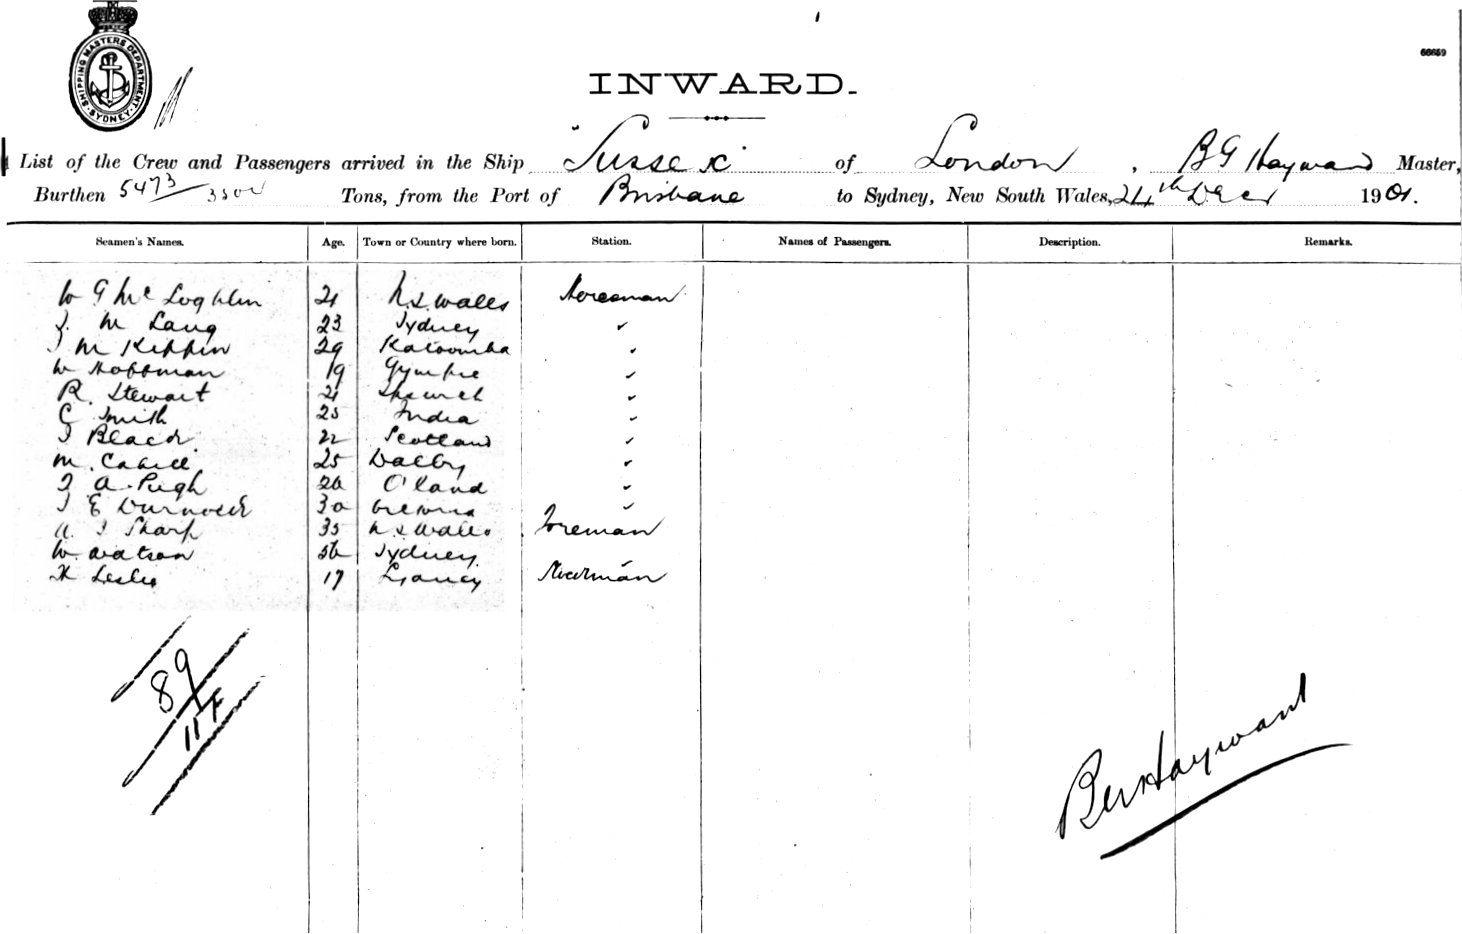 SHIPPING MASTERS DEPARTMENT · SYDNEY ·
66659
INWARD.
List of the Crew and Passengers arrived in the Ship "Sussex" of London, B G Hayward Master,
Burthen 5473 3500 Tons, from the Port of Brisbane to Sydney, New South Wales, 24th Decr 1901.
Seamen's Names. Age. Town or Country where born. Station. Names of Passengers. Description. Remarks.
W G McLoghlin 21 N.S. Wales Horseman
J. M Lang 23 Sydney ✓
J M Kippin 29 Katoomba ✓
W Hoffman 19 Gympie ✓
R. Stewart 21 Ipswich ✓
C Smith 25 India ✓
J Black 22 Scotland ✓
M. Cahill 25 Dalby ✓
J A. Pugh 20 Q'land ✓
J E 30 ✓
A. J Sharp 35 N S Wales Foreman
W. Watson Sydney
H Leslie 17
89
117
Hayward